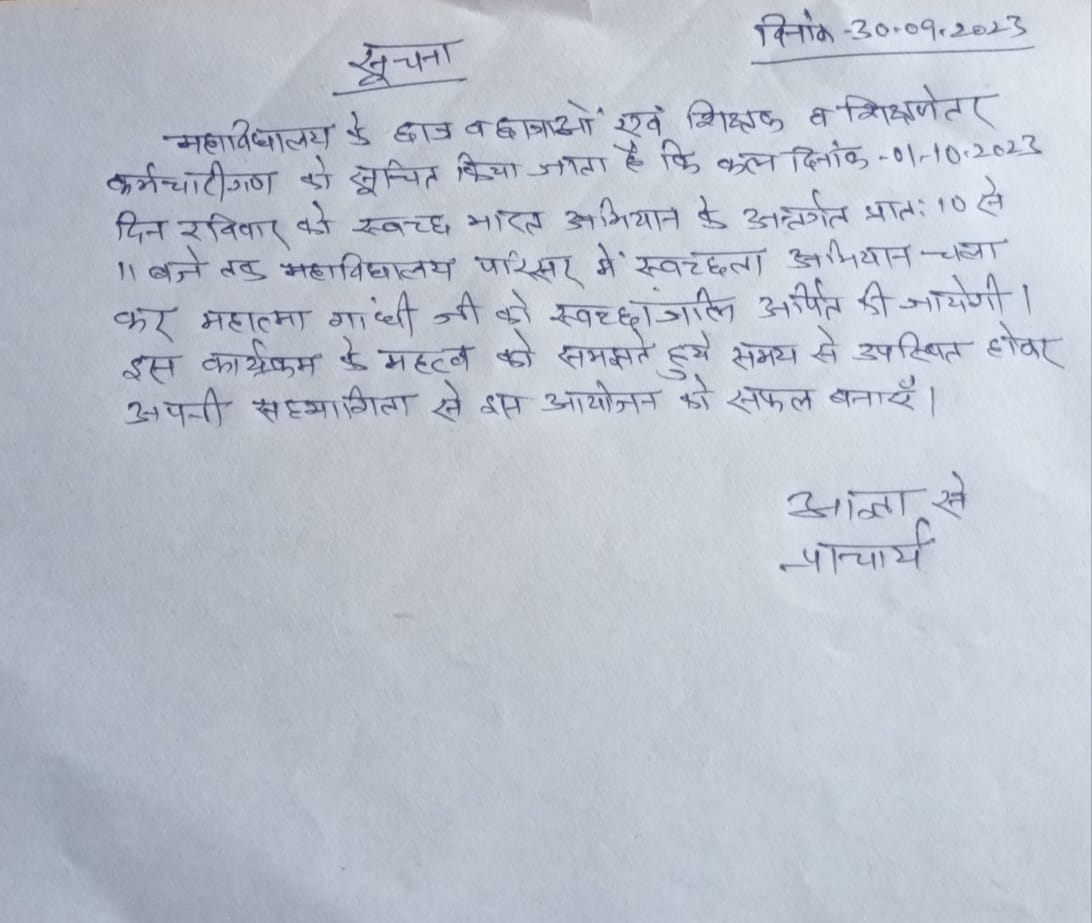 दिनांक -30.09.2023
सूचना
महाविद्यालय के छात्र व छात्राओं एवं शिक्षक व शिक्षणेतर
कर्मचारीगण को सूचित किया जाता है कि कल दिनांक -01-10-2023
दिन रविवार को स्वच्छ भारत अभियान के अन्तर्गत प्रातः 10 से
11 बजे तक महाविद्यालय परिसर में स्वच्छता अभियान चला
कर महात्मा गांधी जी को स्वच्छांजलि अर्पित की जायेगी।
इस कार्यक्रम के महत्व को समझते हुये समय से उपस्थित होकर
अपनी सहभागिता से इस आयोजन को सफल बनाएँ।
आज्ञा से
प्राचार्य